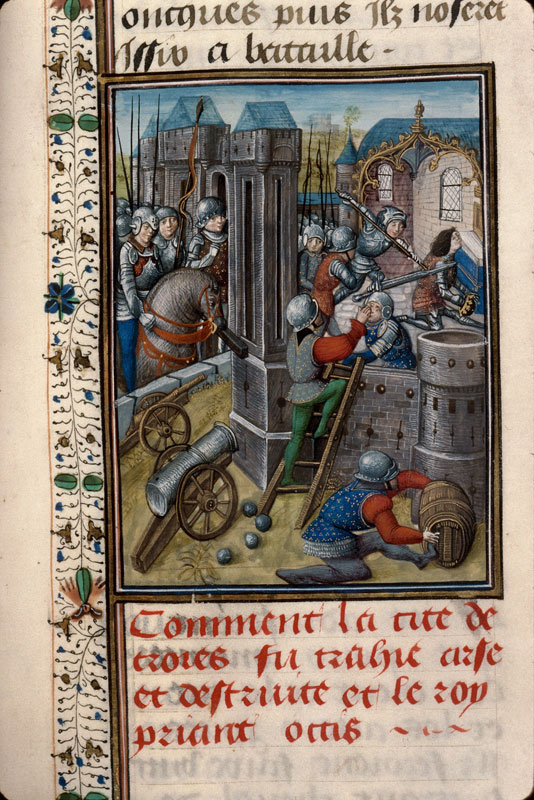 oncques puis Ilz noseret
Issir a bataille -
Comment la cite de
troies fu trahie arse
et destruite et le roy
priant occis